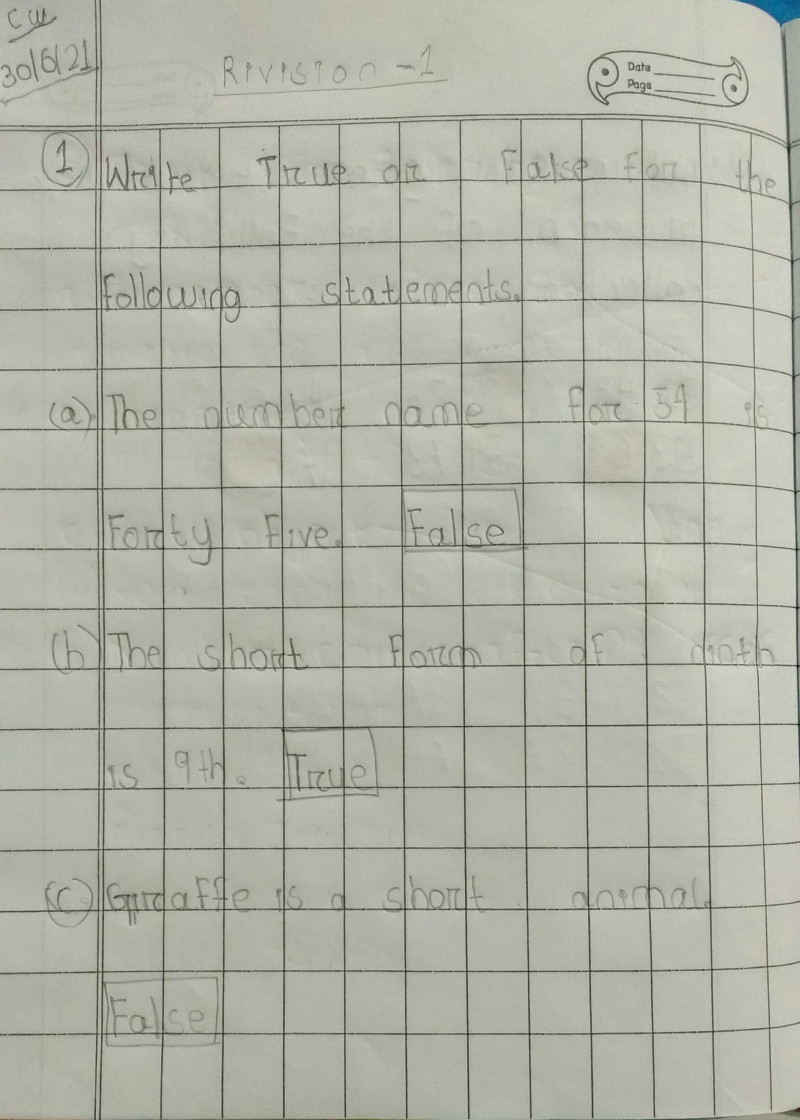 CW
30/6/21
Rivision -1
Date
Page
1 Write True or False for the
following statements.
(a) The number name for 54 is
Forty Five. False
(b) The short form of ninth
is 9th. True
(c) Giraffe is a short animal.
False